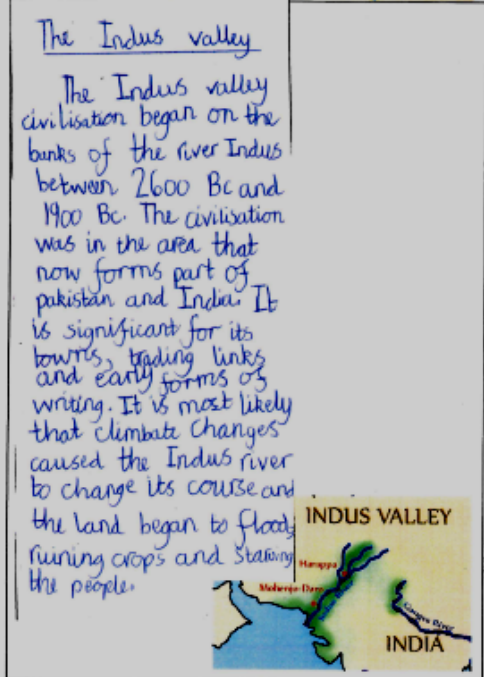 The Indus valley
The Indus valley
civilisation began on the
banks of the river Indus
between 2600 Bc and
1900 Bc. The civilisation
was in the area that
now forms part of
pakistan and India. It
is significant for its
towns, trading links
and early forms of
writing. It is most likely
that climbate changes
caused the Indus river
to change its course and
the land began to flood,
ruining crops and starving
the people.
INDUS VALLEY
Harappa
Mohenjo-Daro
Indus River
Ganges River
INDIA